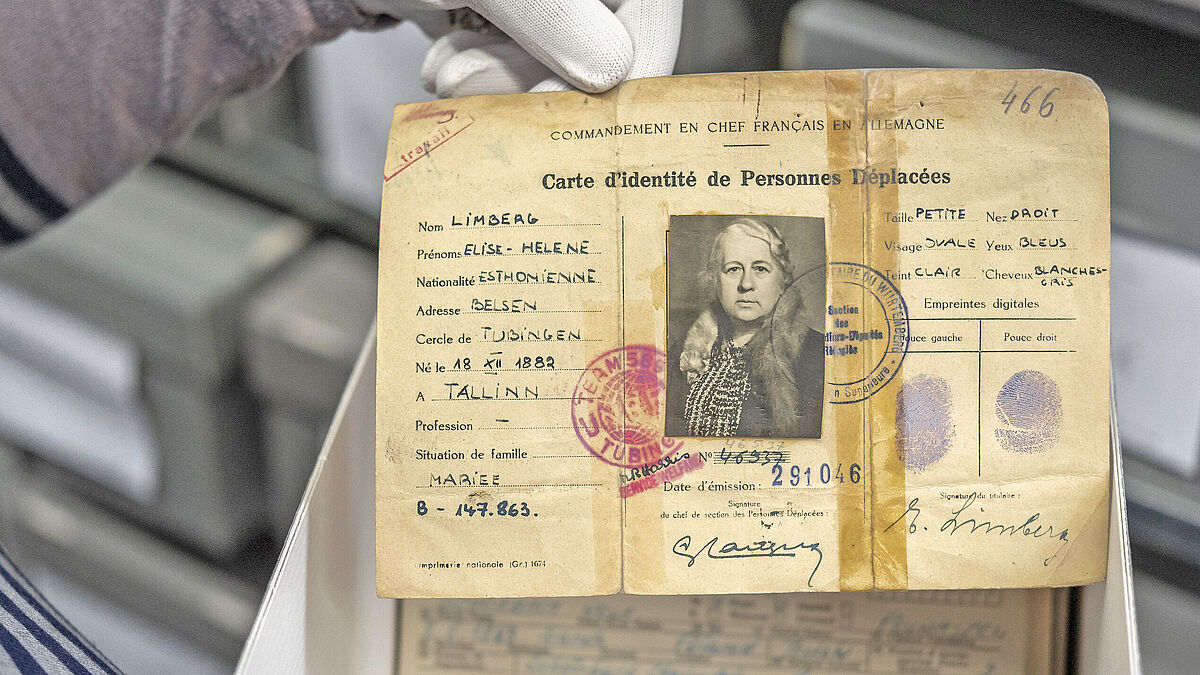 travail
466
COMMANDEMENT EN CHEF FRANÇAIS EN ALLEMAGNE
Carte d'identité de Personnes Déplacées
Nom LIMBERG
Prénoms ELISE-HELENE
Nationalité ESTHONIENNE
Adresse BELSEN
Cercle de TUBINGEN
Né le 18 XII 1882
A TALLINN
Profession -
Situation de famille
MARIEE
B - 147.863.
Imprimerie nationale (Gr.) 1674
TEAM 58
TUBING
SERVICE
Nº 46937
Date d'émission : 291046
Signature
du chef de section des Personnes Déplacées :
Taille PETITE Nez DROIT
Visage OVALE Yeux BLEUS
Teint CLAIR Cheveux BLANCHES-
GRIS
Empreintes digitales
Pouce gauche Pouce droit
DU WURTEMBERG
Section
des
Réfugiés
Signature du titulaire :
E. Limberg